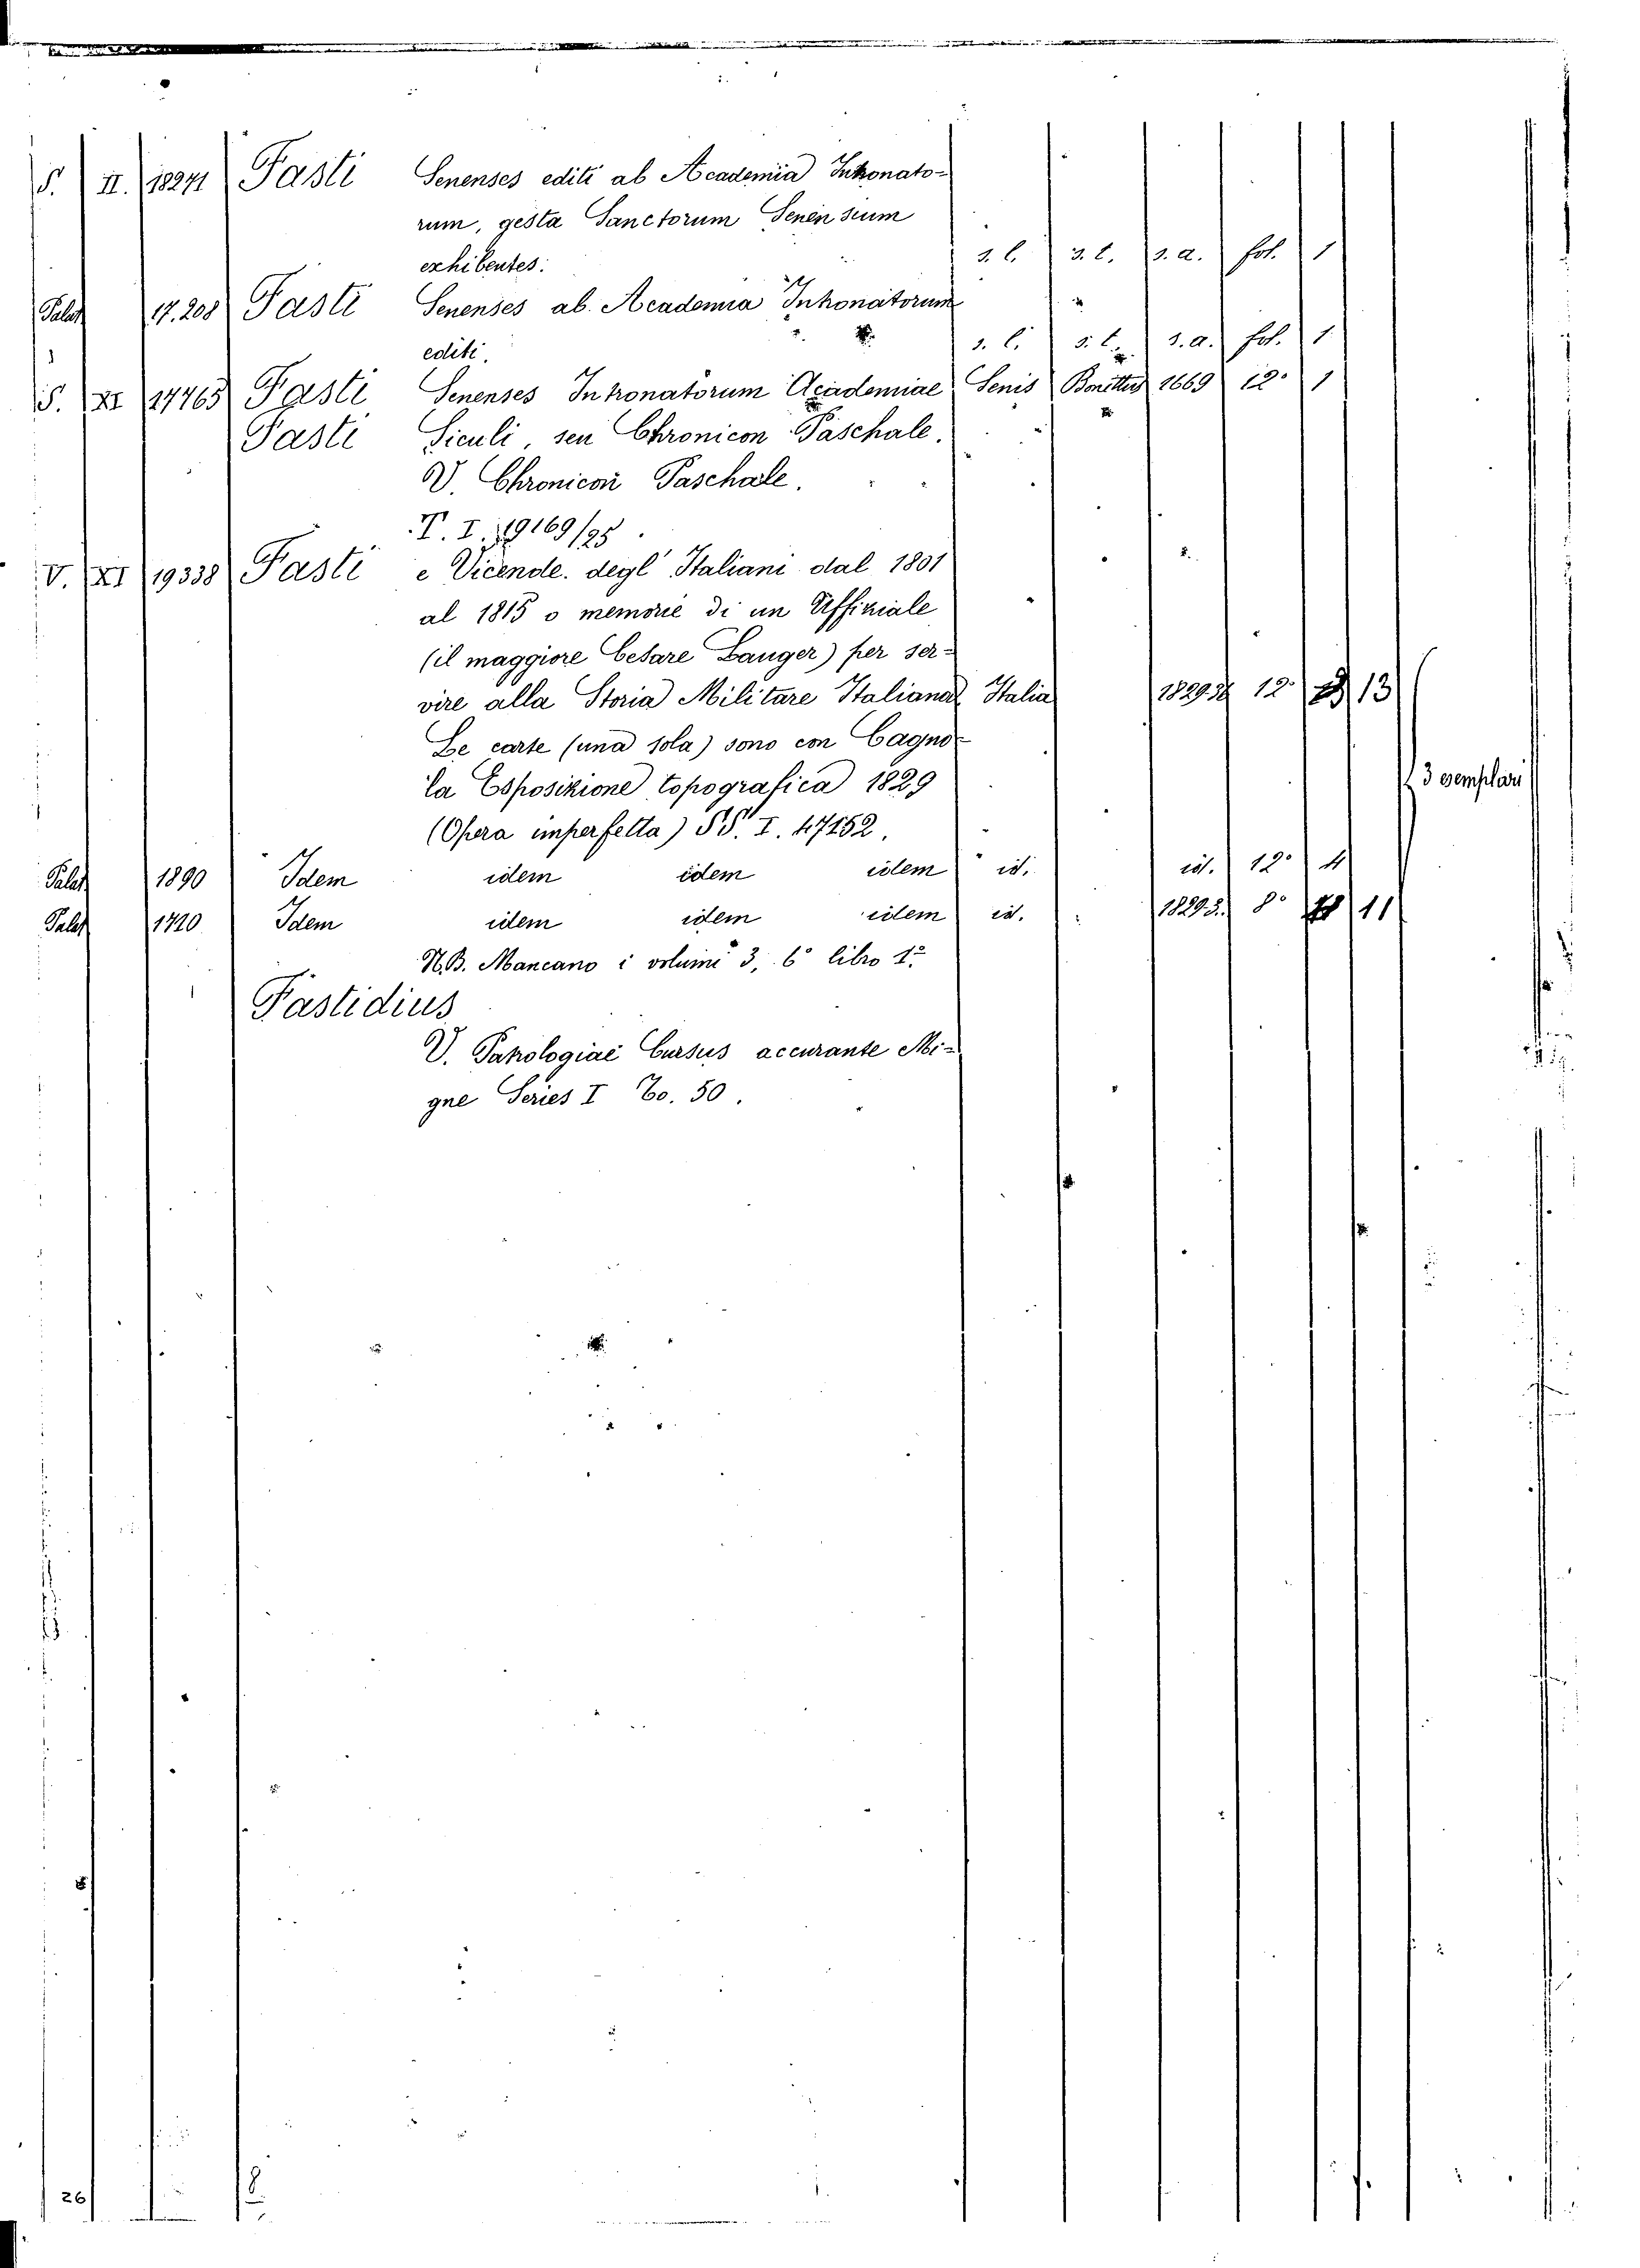 S. II. 18271 Fasti Senenses editi ab Academia Intronato-
rum, gesta Sanctorum Senensium
exhibentes. s. l. s. t. s. a. fol. 1
Palat 17.208 Fasti Senenses ab. Academia Intronatorum
editi. s. l. s. t. s. a. fol. 1
S. XI 17765 Fasti Senenses Intronatorum Academiae Senis Bonettus 1669 12° 1
Fasti Siculi, seu Chronicon Paschale.
V. Chronicon Paschale.
T. I. 19169/95
V. XI 19338 Fasti e Vicende degl' Italiani dal 1801
al 1815 o memorie di un Uffiziale
(il maggiore Cesare Laugier) per ser-
vire alla Storia Militare Italiana Italia 1829.38 12° 13
Le carte (una sola) sono con Cagno-
la Esposizione topografica 1829
(Opera imperfetta) SS. I. 47152.
3 esemplari
Palat 1890 Idem idem idem idem id. id. 12° 4
Palat 1720 Idem idem idem idem id. 8° 11
N.B. Mancano i volumi 3, 6° libro 1°
Fastidius
V. Patrologiae Cursus accurante Mi-
gne Series I To. 50.
26